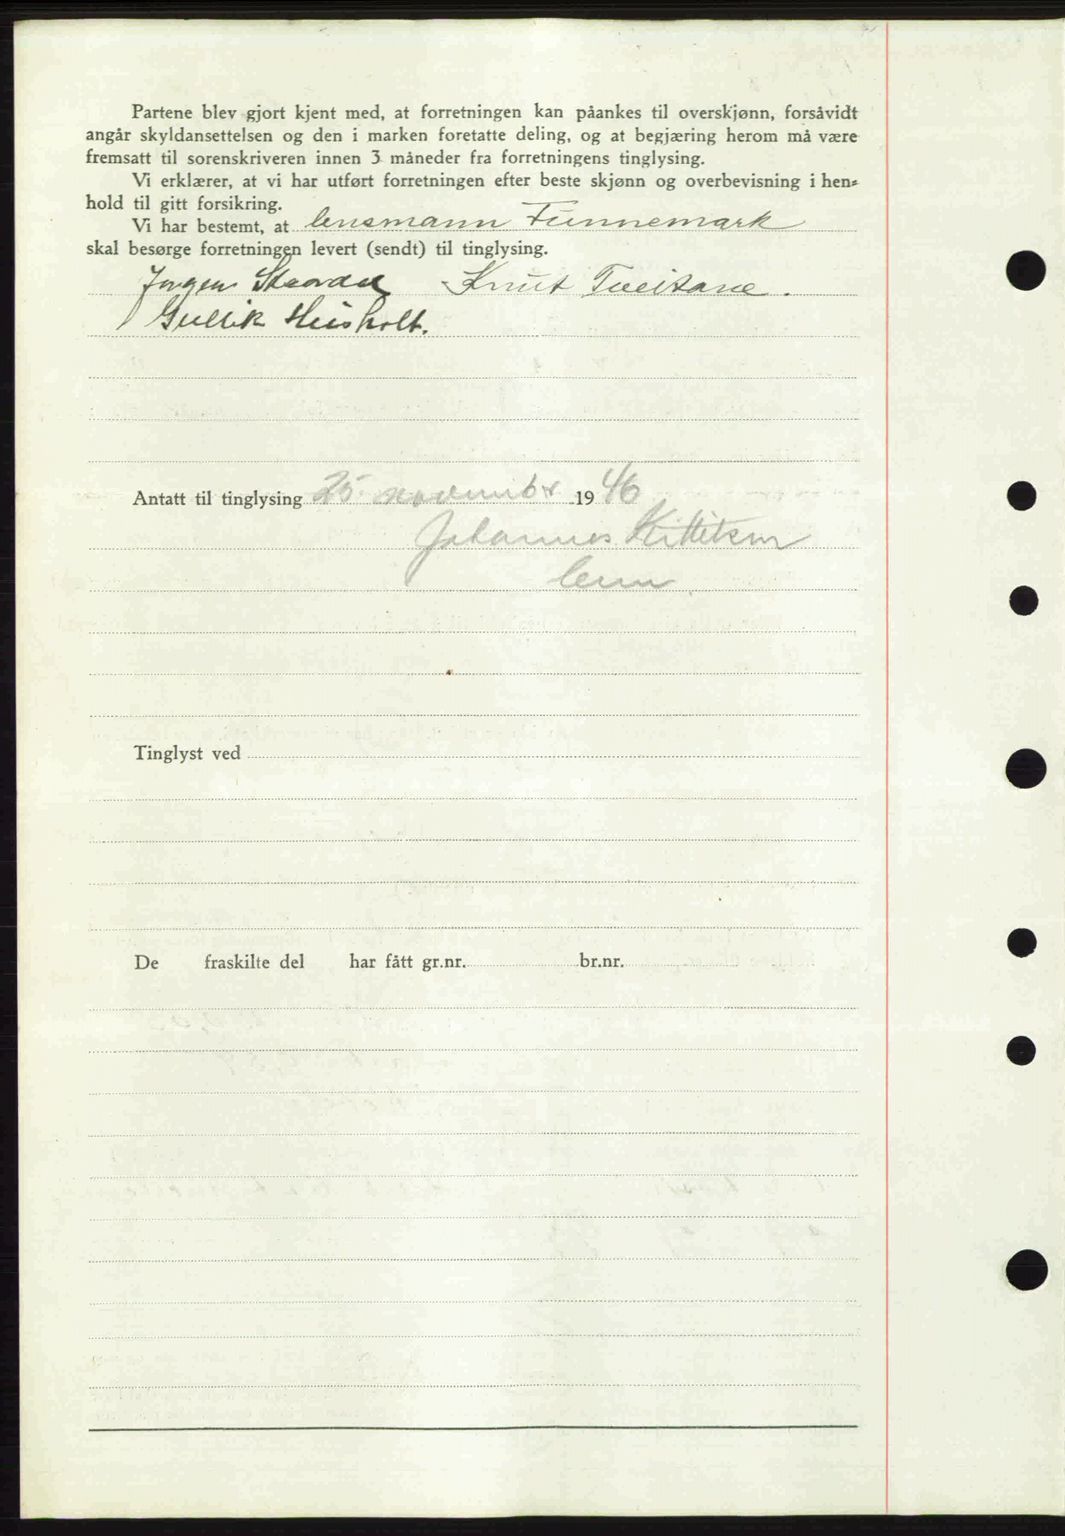 Partene blev gjort kjent med, at forretningen kan påankes til overskjønn, forsåvidt
angår skyldansettelsen og den i marken foretatte deling, og at begjæring herom må være
fremsatt til sorenskriveren innen 3 måneder fra forretningens tinglysing.
Vi erklærer, at vi har utført forretningen efter beste skjønn og overbevisning i hen-
hold til gitt forsikring.
Vi har bestemt, at lensmann Tinnemark
skal besørge forretningen levert (sendt) til tinglysing.
Jørgen Knut Tveitane.
Gullik Husholt.
Antatt til tinglysing 25 november 1946
Johannes Kittilsen
Tinglyst ved
De fraskilte del har fått gr.nr. br.nr.